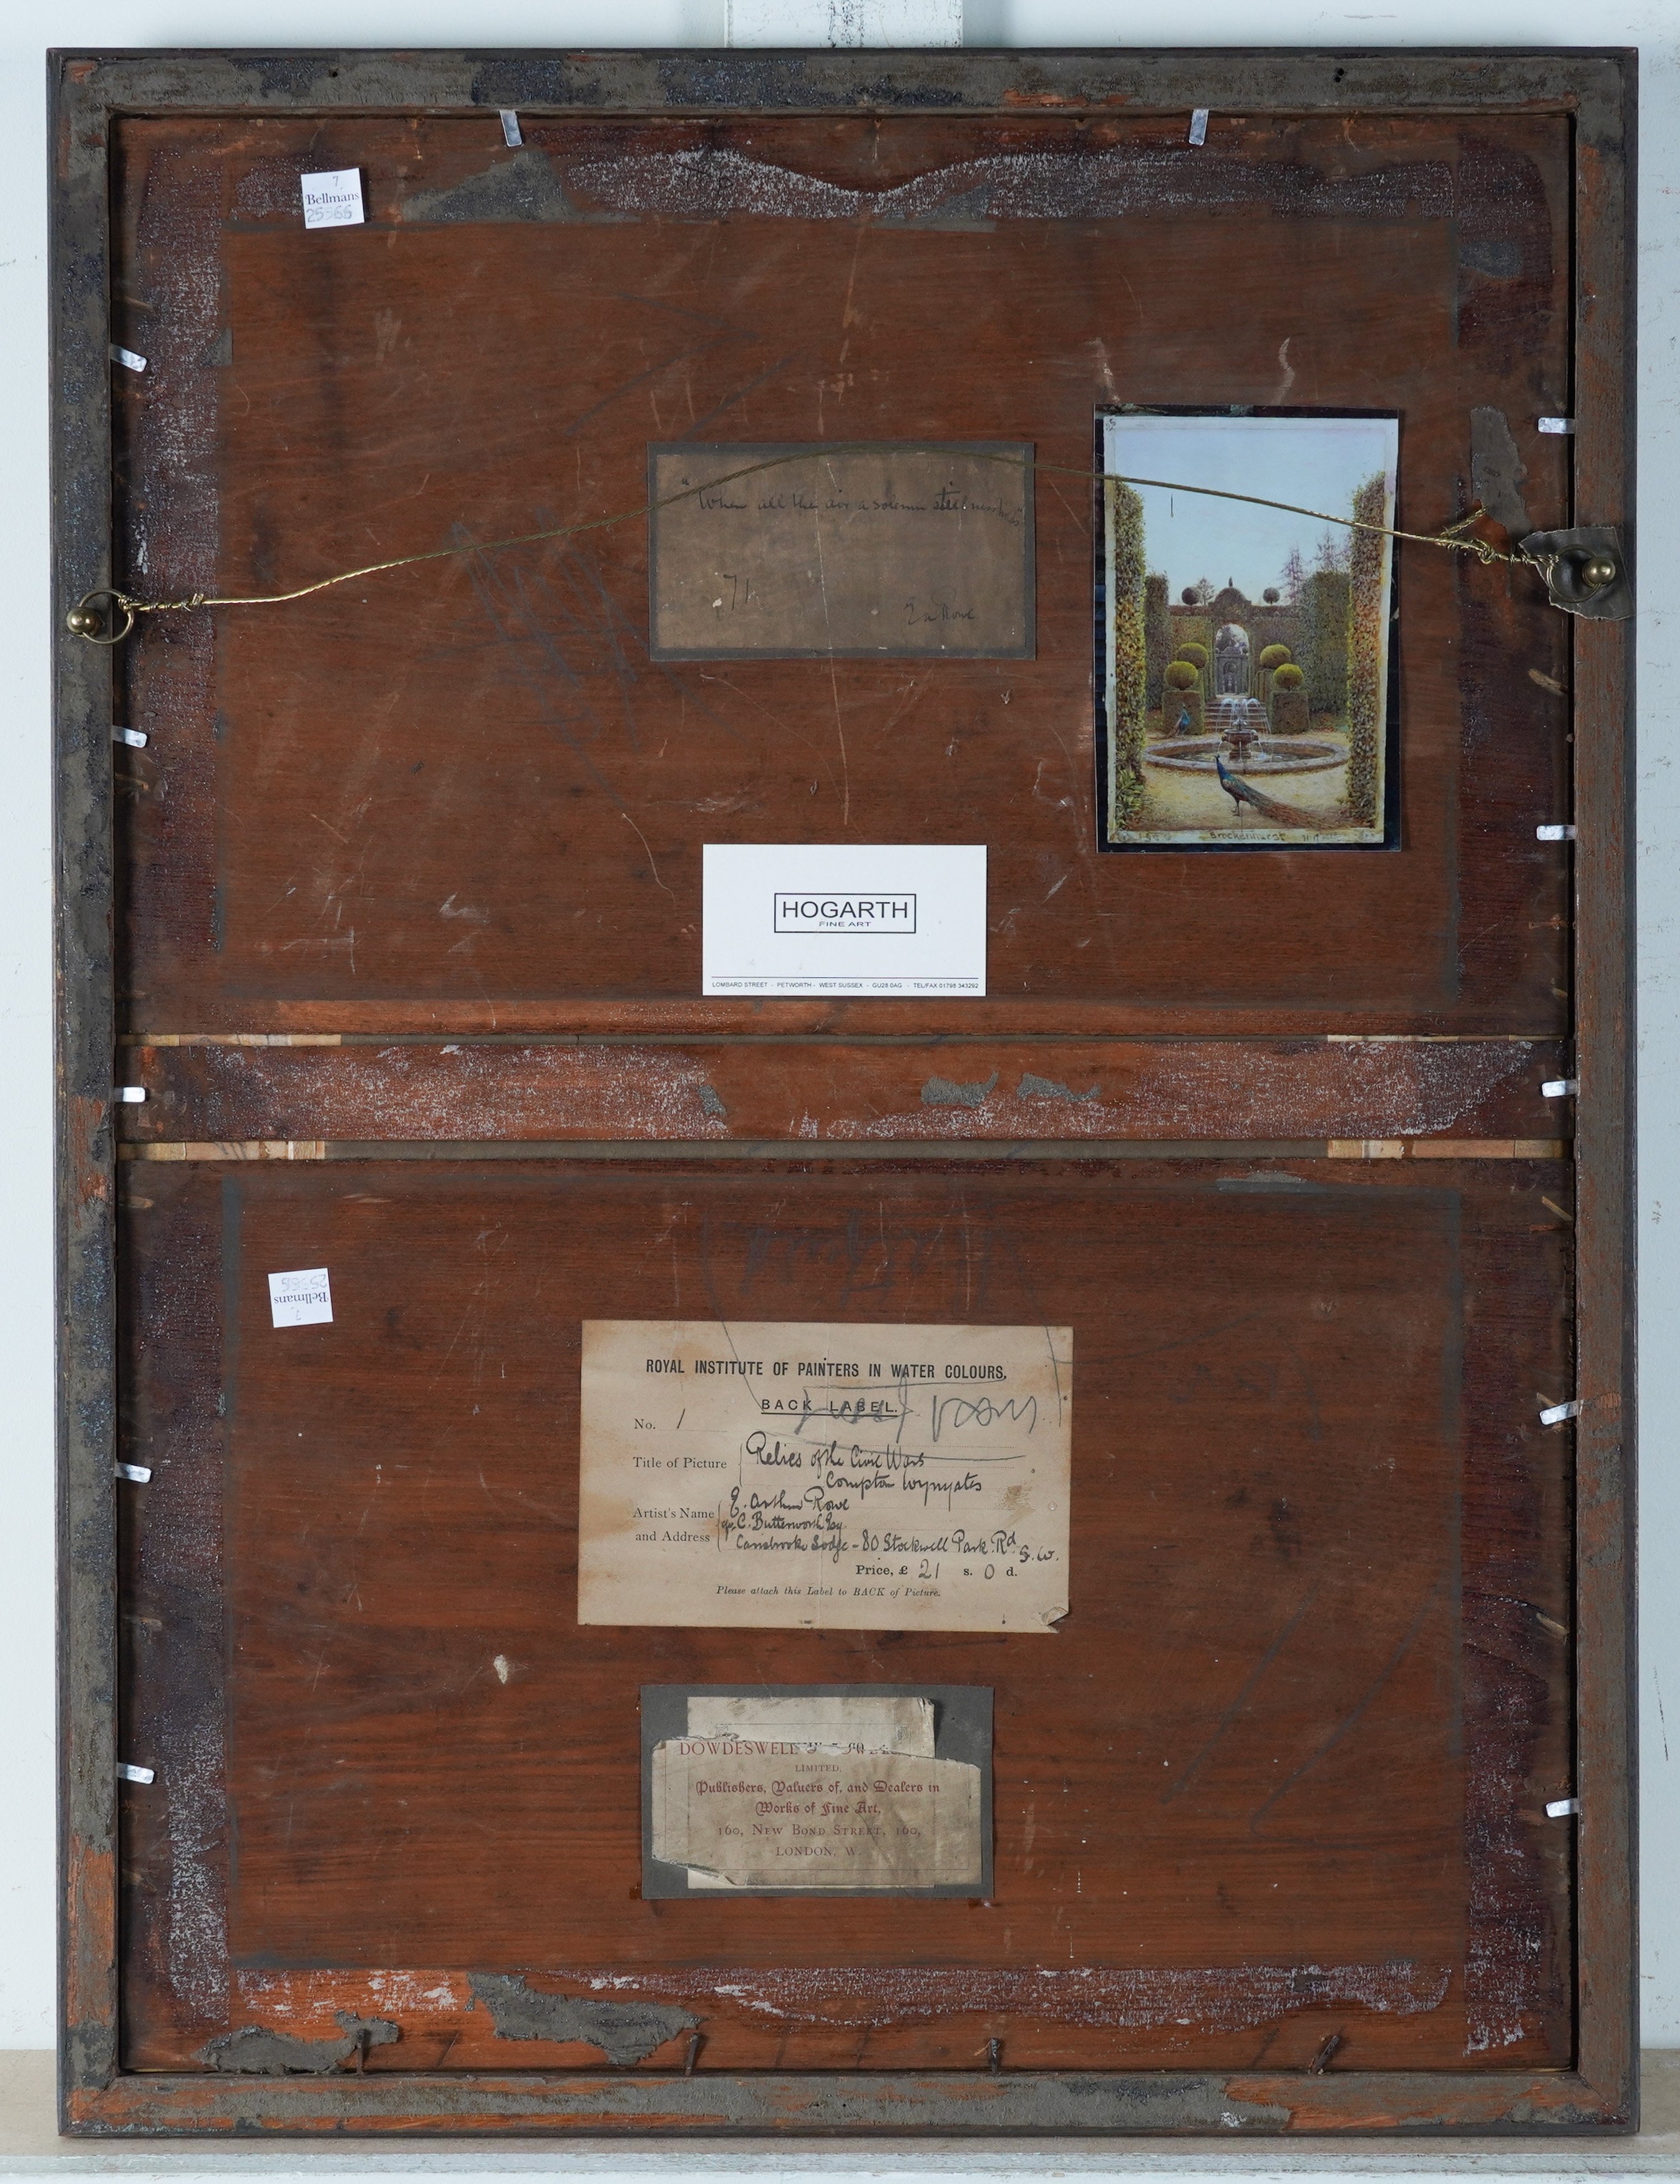 7
Bellmans
"When all the air a solemn stillness holds"
71
E A Rowe
Brockenhurst
HOGARTH
FINE ART
LOMBARD STREET - PETWORTH - WEST SUSSEX - GU28 0AG - TEL/FAX 01798 343292
7
Bellmans
ROYAL INSTITUTE OF PAINTERS IN WATER COLOURS,
BACK LABEL.
No. 1
Title of Picture Relics of the Civil Wars
Compton Wynyates
Artist's Name E. Arthur Rowe
and Address C. Butterworth Esq
Carisbrooke Lodge - 80 Stockwell Park Rd S.W.
Price, £ 21 s. 0 d.
Please attach this Label to BACK of Picture.
DOWDESWELL
LIMITED,
Publishers, Valuers of, and Dealers in
Works of Fine Art,
160, NEW BOND STREET, 160,
LONDON, W